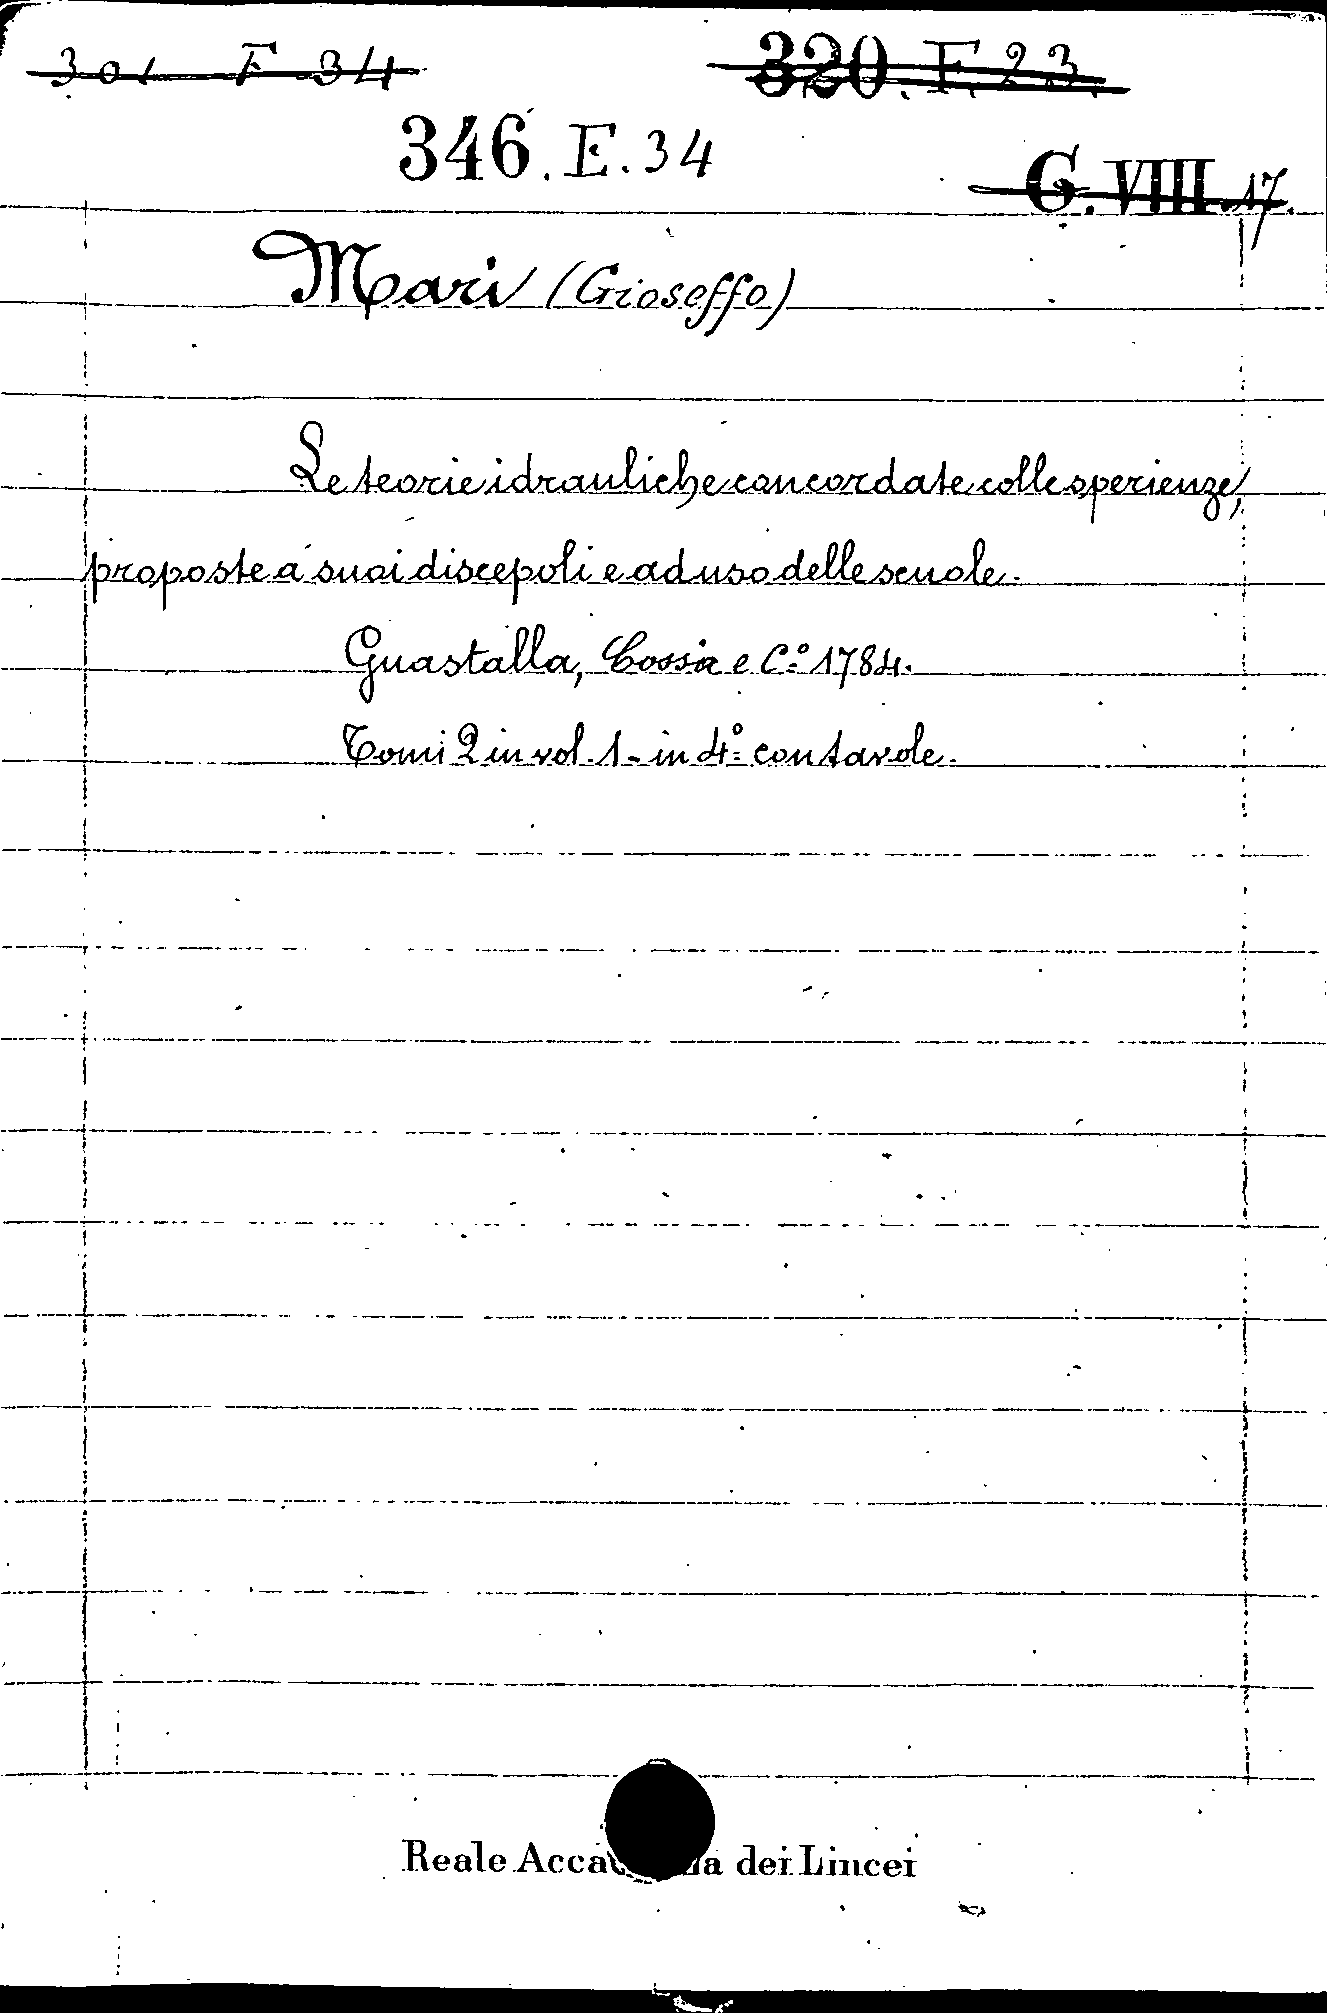 301 F 34
320. F. 23.
346. E. 34
G. VIII. 17.
Mari (Gioseffo)
Le teorie idrauliche concordate colle sperienze,
proposte a' suoi discepoli e ad uso delle scuole.
Guastalla, Cossia e C.º 1784.
Tomi 2 in vol. 1 - in 4º con tavole.
Reale Acca a dei Lincei